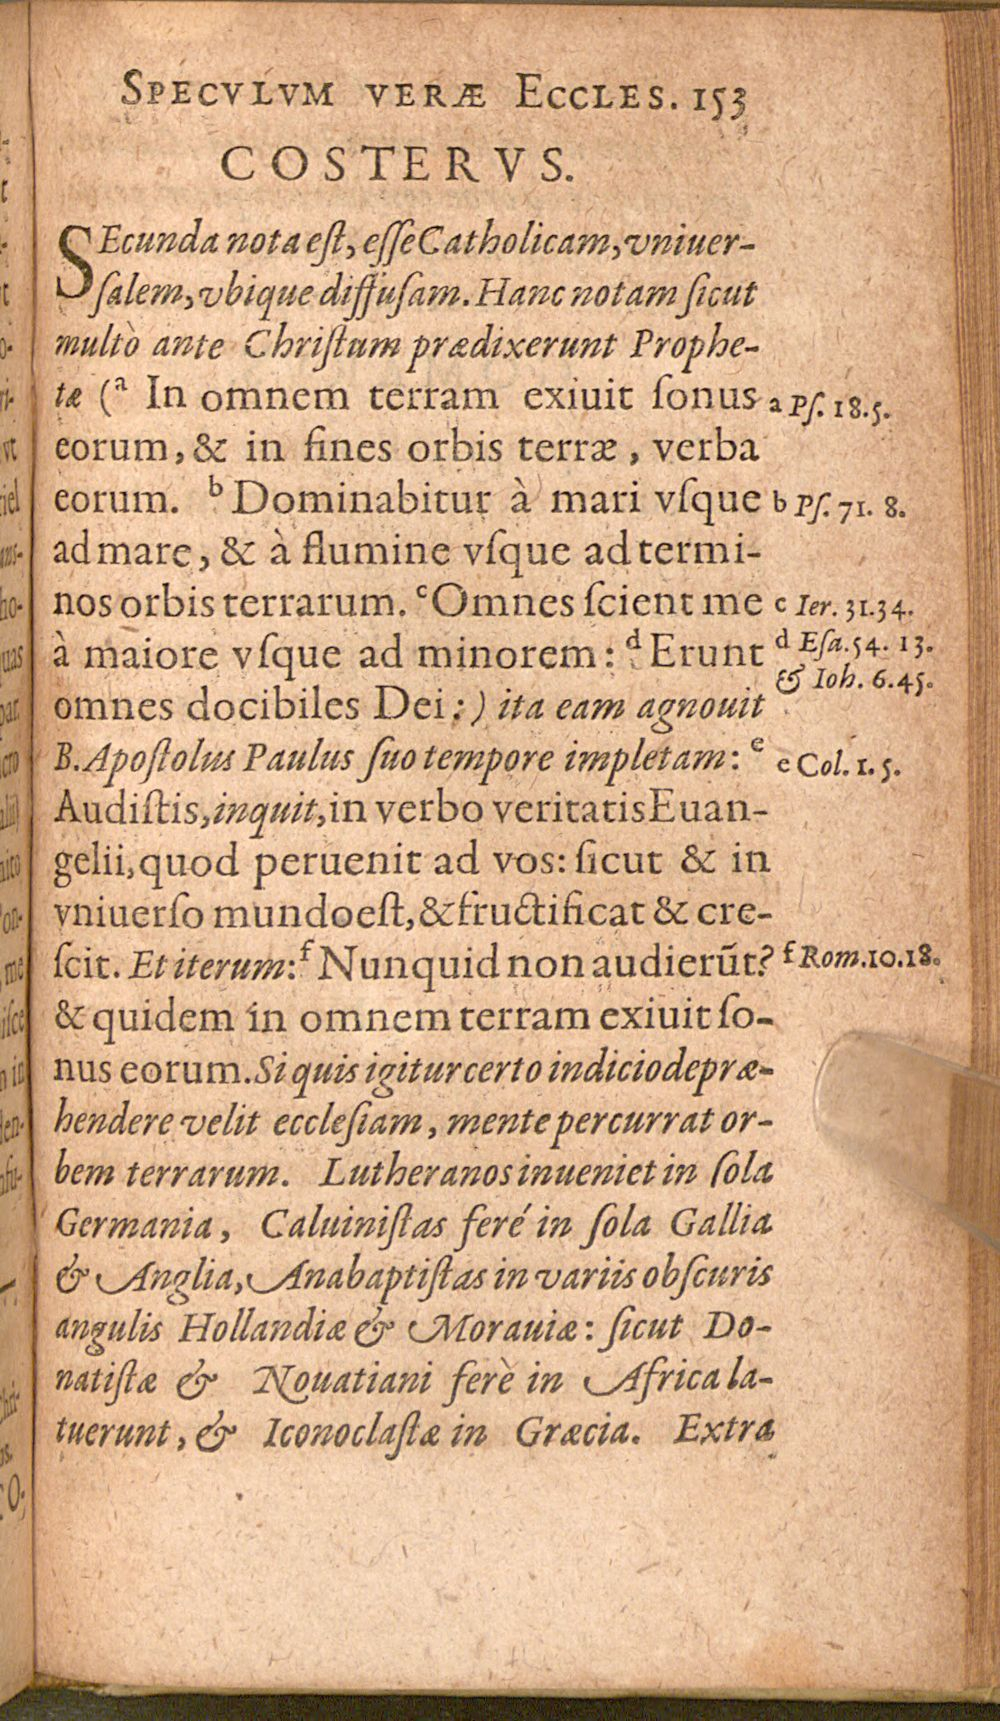 SPECVLVM VERÆ ECCLES. 153
COSTERVS.
SEcunda nota eſt, eſſe Catholicam, vniuer-
ſalem, vbique diffuſam. Hanc notam ſicut
multò ante Chriſtum prædixerunt Prophe-
tæ (ᵃ In omnem terram exiuit ſonus
a Pſ. 18.5.
eorum, & in fines orbis terræ, verba
eorum. ᵇ Dominabitur à mari vſque
b Pſ. 71. 8.
ad mare, & à flumine vſque ad termi-
nos orbis terrarum. ᶜ Omnes ſcient me
c Ier. 31.34.
à maiore vſque ad minorem: ᵈ Erunt
d Eſa. 54. 13.
& Ioh. 6.45.
omnes docibiles Dei:) ita eam agnouit
B. Apoſtolus Paulus ſuo tempore impletam: ᵉ
e Col. 1. 5.
Audiſtis, inquit, in verbo veritatis Euan-
gelii, quod peruenit ad vos: ſicut & in
vniuerſo mundo eſt, & fructificat & cre-
ſcit. Et iterum: ᶠ Nunquid non audierūt?
f Rom. 10.18.
& quidem in omnem terram exiuit ſo-
nus eorum. Si quis igitur certo indicio depræ-
hendere velit eccleſiam, mente percurrat or-
bem terrarum. Lutheranos inueniet in ſola
Germania, Caluiniſtas feré in ſola Gallia
& Anglia, Anabaptiſtas in variis obſcuris
angulis Hollandiæ & Morauiæ: ſicut Do-
natiſtæ & Nouatiani ferè in Africa la-
tuerunt, & Iconoclaſtæ in Græcia. Extra